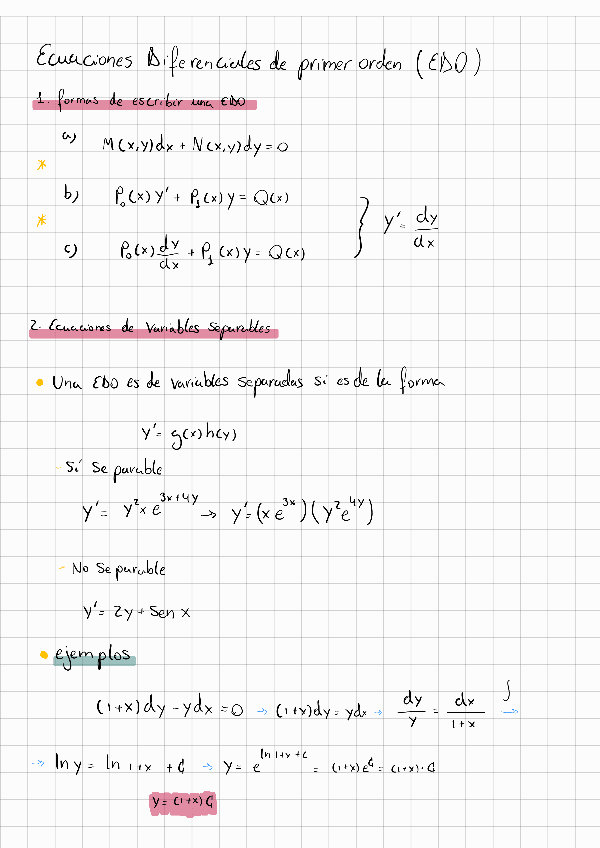 Ecuaciones Diferenciales de primer orden (EDO)
1. formas de escribir una EDO
a) M(x,y)dx + N(x,y)dy = 0
b) P₀(x) y' + P₁(x) y = Q(x)
} y' = dy/dx
c) P₀(x) dy/dx + P₁(x) y = Q(x)
2. Ecuaciones de Variables Separables
• Una EDO es de variables separadas si es de la forma
y' = g(x)h(y)
- Sí Separable
y' = y²x e^(3x+4y) → y' = (x e^(3x)) (y² e^(4y))
- No Separable
y' = 2y + Sen x
• ejemplos
(1+x)dy - ydx = 0 → (1+x)dy = ydx → dy/y = dx/(1+x) ∫→
→ ln y = ln 1+x + C₁ → y = e^(ln 1+x + C₁) = (1+x)e^(C₁) = (1+x)·C₁
y = (1+x)C₁